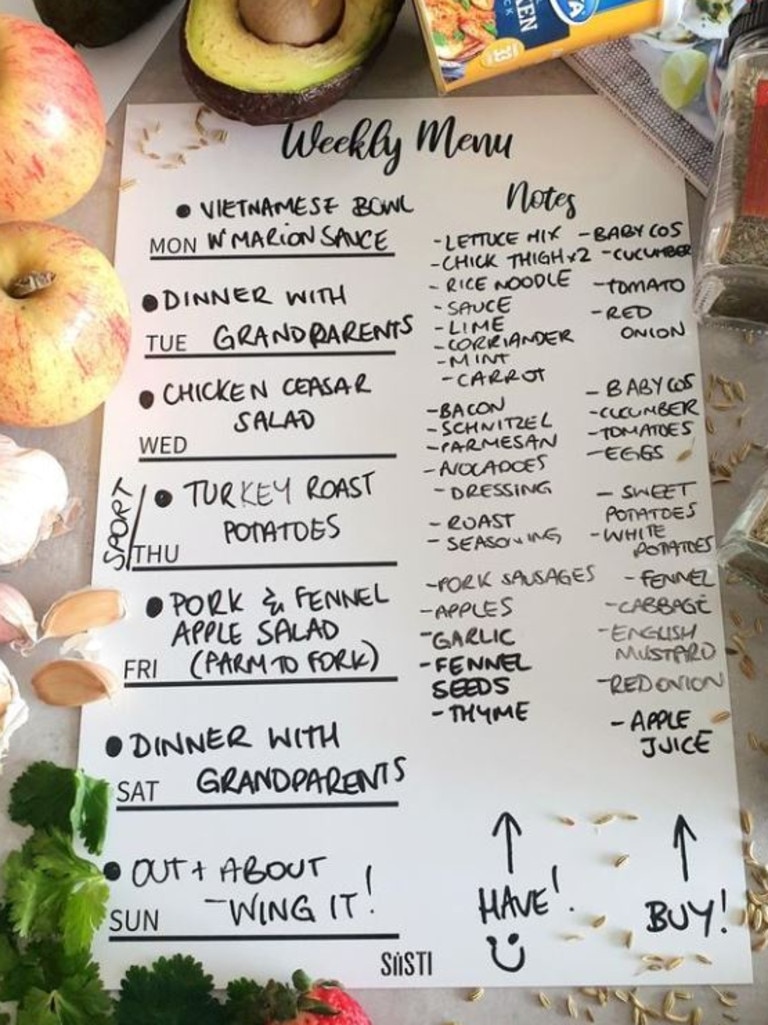 Weekly Menu
• VIETNAMESE BOWL
MON W' MARION SAUCE
• DINNER WITH
TUE GRANDPARENTS
• CHICKEN CEASAR
SALAD
WED
SPORT
• TURKEY ROAST
POTATOES
THU
• PORK & FENNEL
APPLE SALAD
FRI (FARM TO FORK)
• DINNER WITH
SAT GRANDPARENTS
• OUT + ABOUT
SUN - WING IT!
Notes
- LETTUCE MIX
- CHICK THIGH x2
- RICE NOODLE
- SAUCE
- LIME
- CORRIANDER
- MINT
- CARROT
- BACON
- SCHNITZEL
- PARMESAN
- AVOCADOES
- DRESSING
- ROAST
- SEASONING
- PORK SAUSAGES
- APPLES
- GARLIC
- FENNEL
SEEDS
- THYME
HAVE!
- BABY COS
- CUCUMBER
- TOMATO
- RED
ONION
- BABY COS
- CUCUMBER
- TOMATOES
- EGGS
- SWEET
POTATOES
- WHITE
POTATOES
- FENNEL
- CABBAGE
- ENGLISH
MUSTARD
- RED ONION
- APPLE
JUICE
BUY!
SiiSTI